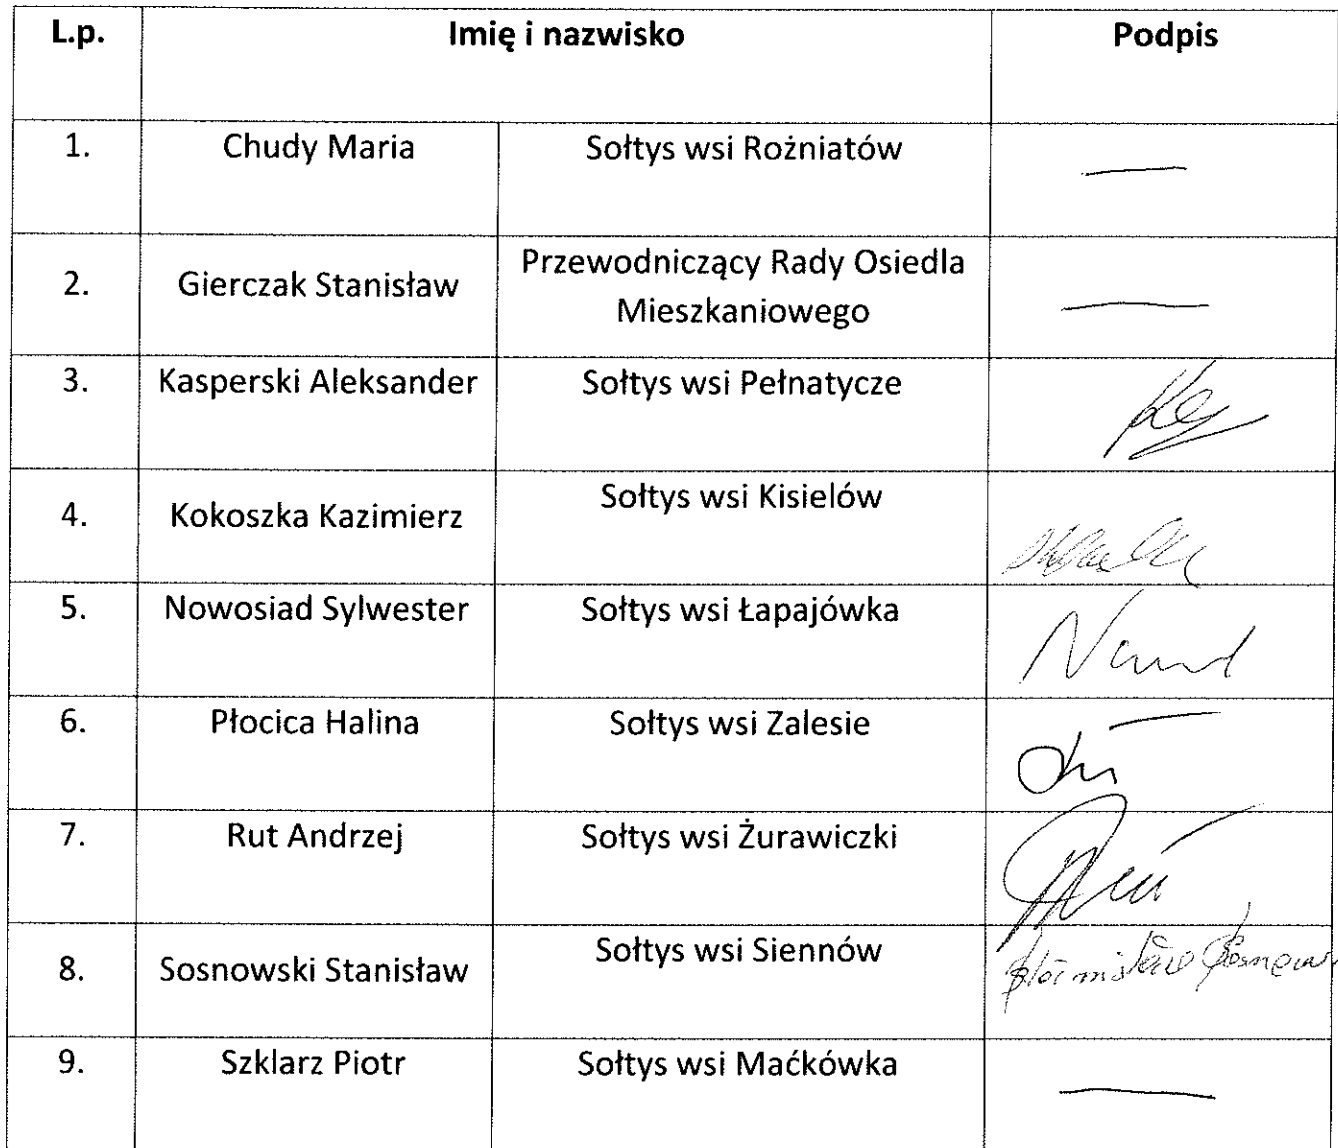 L.p. Imię i nazwisko Podpis
1. Chudy Maria Sołtys wsi Rożniatów —
2. Gierczak Stanisław Przewodniczący Rady Osiedla
Mieszkaniowego —
3. Kasperski Aleksander Sołtys wsi Pełnatycze
4. Kokoszka Kazimierz Sołtys wsi Kisielów
5. Nowosiad Sylwester Sołtys wsi Łapajówka
6. Płocica Halina Sołtys wsi Zalesie
7. Rut Andrzej Sołtys wsi Żurawiczki
8. Sosnowski Stanisław Sołtys wsi Siennów
9. Szklarz Piotr Sołtys wsi Maćkówka —